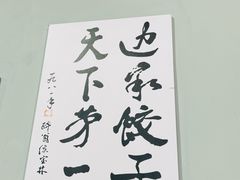 边家饺子
天下第一
一九八一年